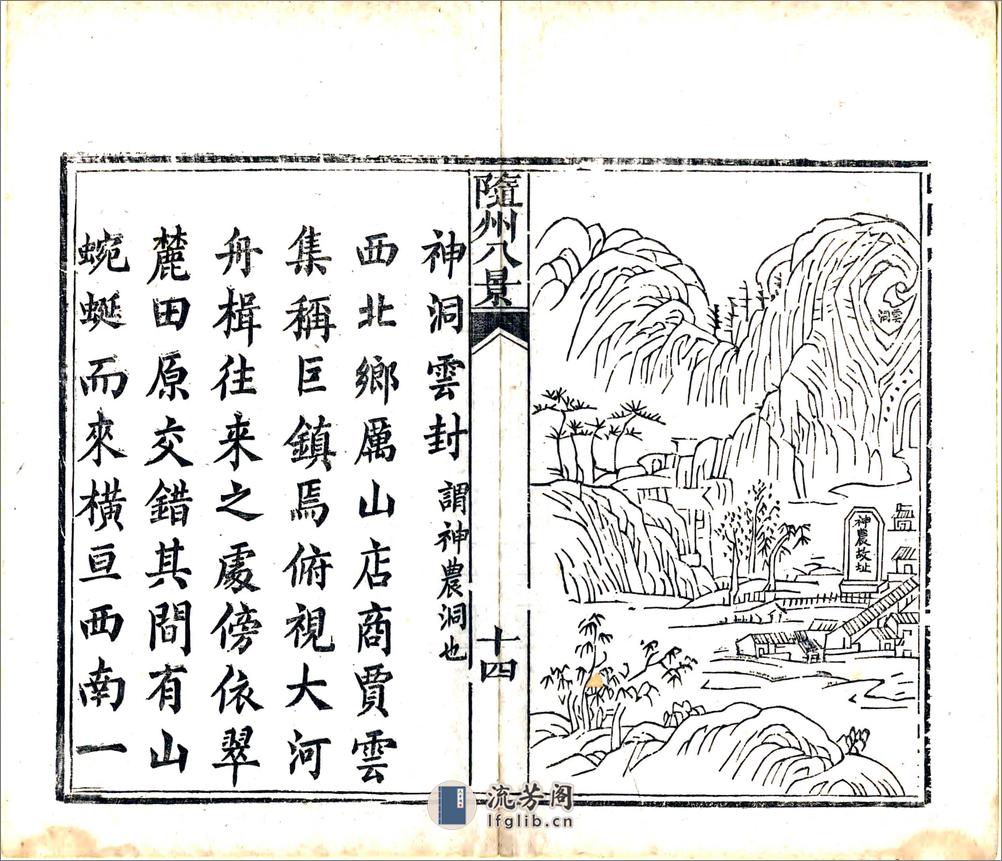 雲洞
神農故址
隨州八景
十四
神洞雲封 謂神農洞也
西北鄉厲山店商賈雲
集稱巨鎮焉俯視大河
舟楫往来之處傍依翠
麓田原交錯其間有山
蜿蜒而來橫亘西南一
流芳阁
lfglib.cn